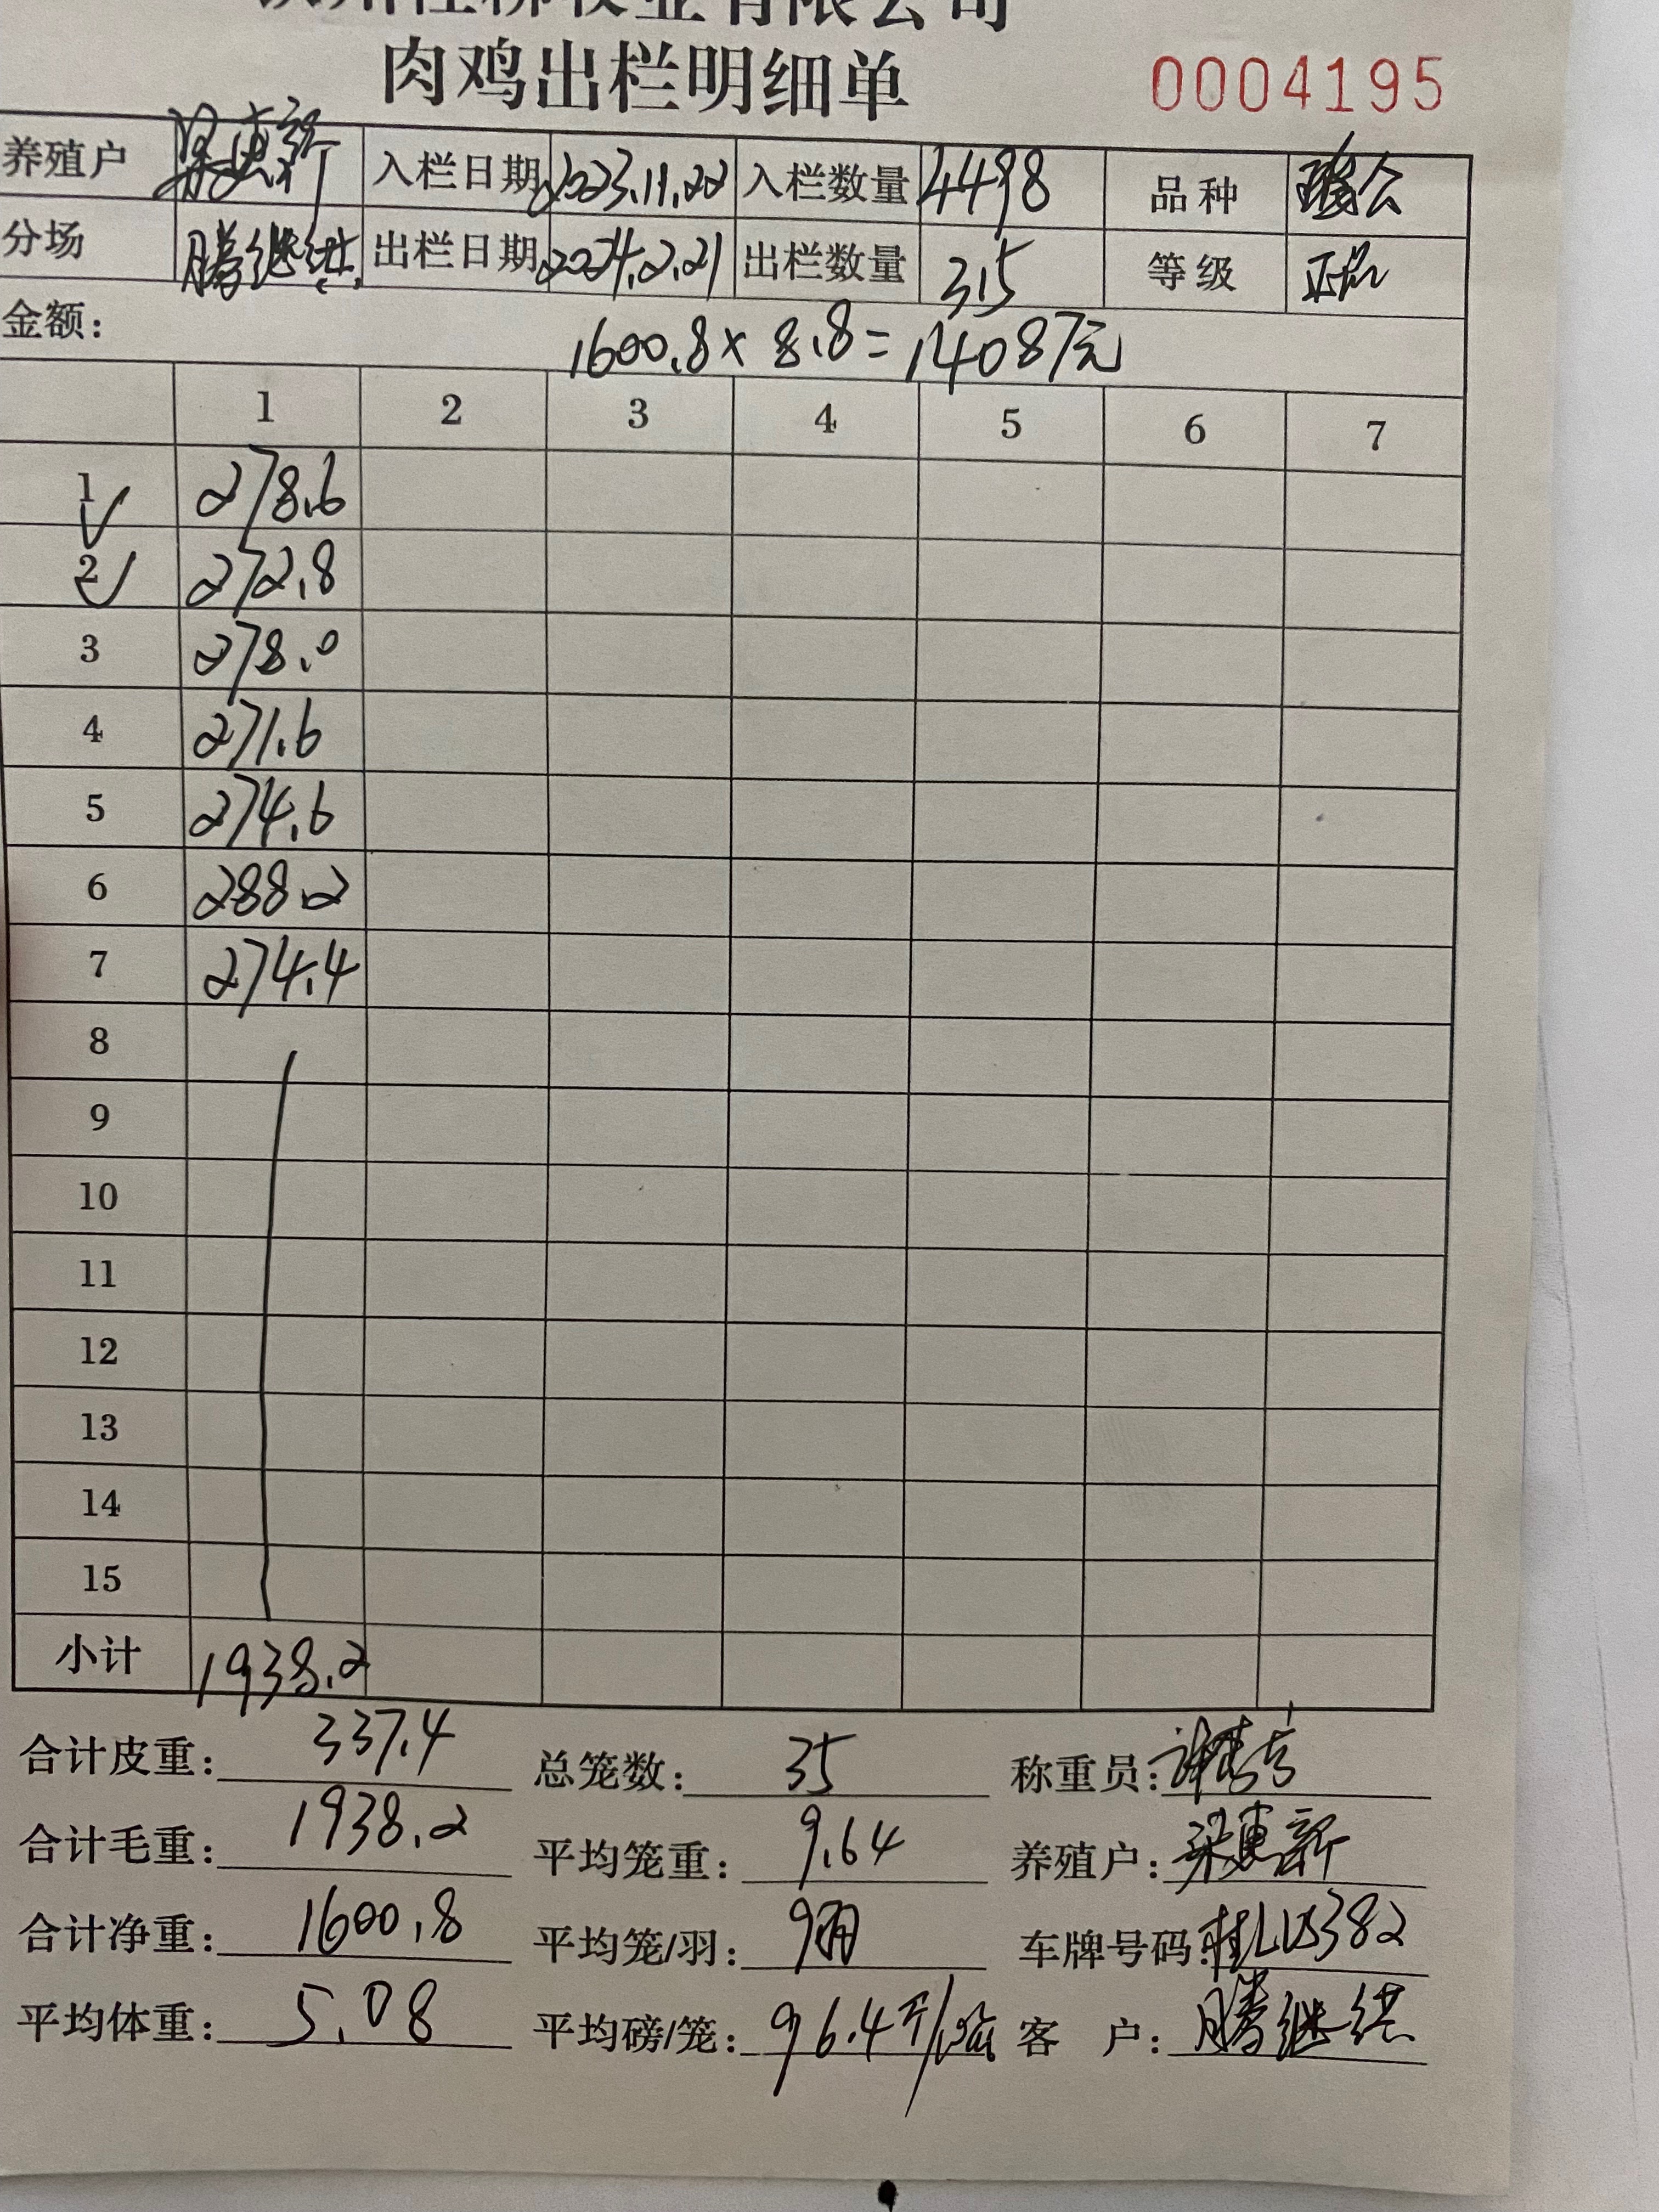 有限公司
肉鸡出栏明细单 0004195
养殖户 梁惠新 入栏日期 2023.11.22 入栏数量 4498 品种 瑶公
分场 滕继洪 出栏日期 2024.2.21 出栏数量 315 等级 正品
金额: 1600.8×8.8=14087元
1 2 3 4 5 6 7
1 278.6
2 272.8
3 278.0
4 271.6
5 274.6
6 288.2
7 274.4
8
9
10
11
12
13
14
15
小计 1938.2
合计皮重: 337.4 总笼数: 35 称重员:
合计毛重: 1938.2 平均笼重: 9.64 养殖户: 梁惠新
合计净重: 1600.8 平均笼/羽: 9羽 车牌号码:
平均体重: 5.08 平均磅/笼: 96.4斤/ 客户: 滕继洪